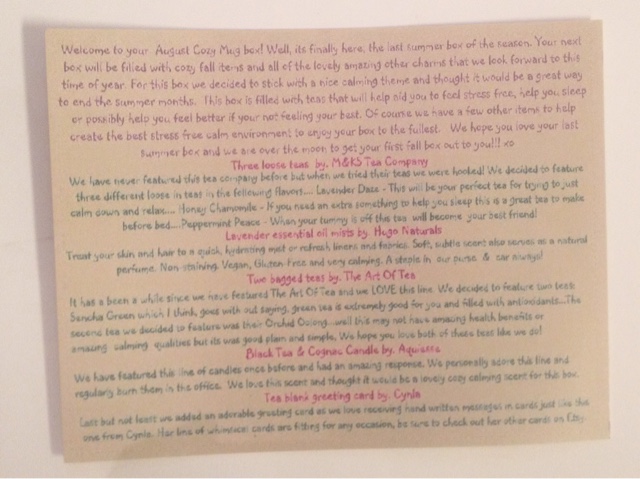 Welcome to your August Cozy Mug box! Well, its finally here, the last summer box of the season. Your next
box will be filled with cozy fall items and all of the lovely amazing other charms that we look forward to this
time of year. For this box we decided to stick with a nice calming theme and thought it would be a great way
to end the summer months. This box is filled with teas that will help aid you to feel stress free, help you sleep
or possibly help you feel better if your not feeling your best. Of course we have a few other items to help
create the best stress free calm environment to enjoy your box to the fullest. We hope you love your last
summer box and we are over the moon to get your first fall box out to you!!! xo
Three loose teas by. M&KS Tea Company
We have never featured this tea company before but when we tried their teas we were hooked! We decided to feature
three different loose in teas in the following flavors.... Lavender Daze - This will be your perfect tea for trying to just
calm down and relax.... Honey Chamomile - If you need an extra something to help you sleep this is a great tea to make
before bed....Peppermint Peace - When your tummy is off this tea will become your best friend!
Lavender essential oil mists by. Hugo Naturals
Treat your skin and hair to a quick, hydrating mist or refresh linens and fabrics. Soft, subtle scent also serves as a natural
perfume. Non staining, Vegan, Gluten Free and very calming. A staple in our purse & car always!
Two bagged teas by. The Art Of Tea
It has a been a while since we have featured The Art Of Tea and we LOVE this line. We decided to feature two teas:
Sencha Green which I think, goes with out saying, green tea is extremely good for you and filled with antioxidants...The
second tea we decided to feature was their Orchid Oolong...well this may not have amazing health benefits or
amazing calming qualities but its was good plain and simple. We hope you love both of these teas like we do!
Black Tea & Cognac Candle by. Aquiesse
We have featured this line of candles once before and had an amazing response. We personally adore this line and
regularly burn them in the office. We love this scent and thought it would be a lovely cozy calming scent for this box.
Tea blank greeting card by. Cynla
Last but not least we added an adorable greeting card as we love receiving hand written messages in cards just like the
one from Cynla. Her line of whimsical cards are fitting for any occasion, be sure to check out her other cards on Etsy.